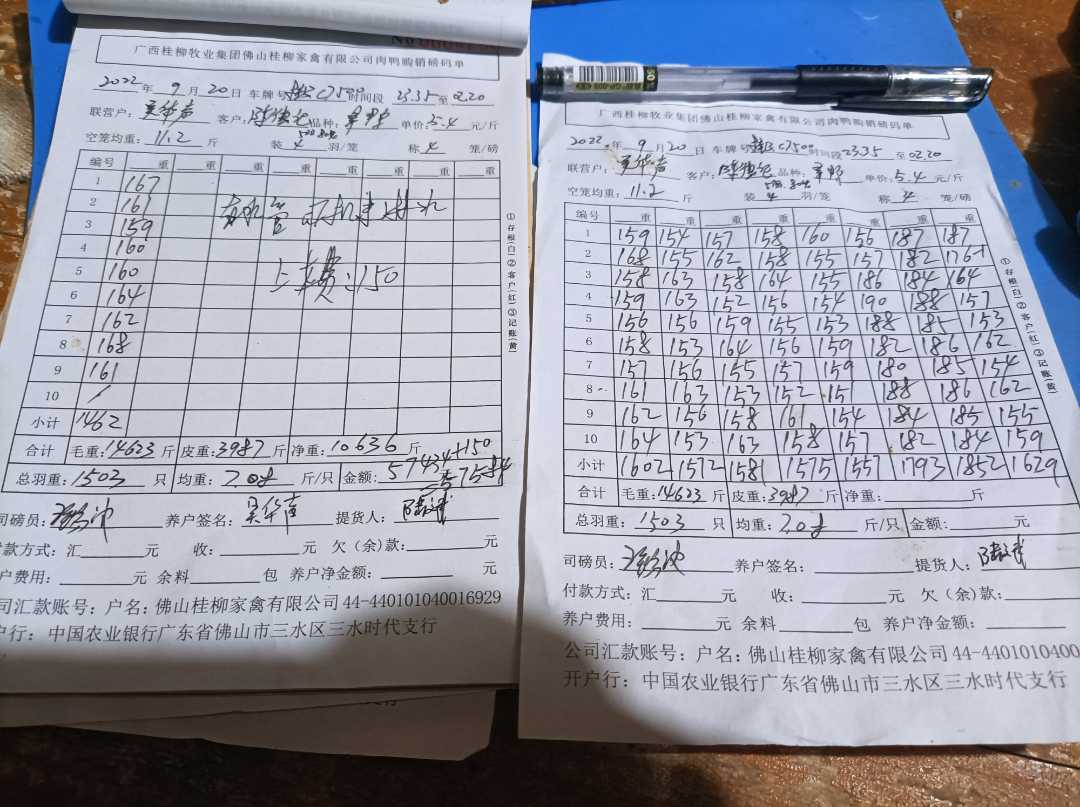 广西桂柳牧业集团佛山桂柳家禽有限公司肉鸭购销磅码单
2022年 9月 20日 车牌号 C7500 时间段 23.35 至 02.20
联营户: 吴华声 客户: 品种: 单价: 5.4 元/斤
空笼均重: 11.2 斤 装 4 羽/笼 称 4 笼/磅
编号 重 重 重 重 重 重 重
1 167
2 161
3 159
4 160
5 160
6 164
7 162
8 168
9 161
10 /
上车费:150
小计 1462
合计 毛重: 14623 斤 皮重: 3987 斤 净重: 10636 斤
总羽重: 1503 只 均重: 7.08 斤/只 金额: 57434+150
=57584
司磅员: 养户签名: 吴华声 提货人:
付款方式: 汇 元 收: 元 欠(余)款: 元
户费用: 元 余料 包 养户净金额: 元
司汇款账号: 户名: 佛山桂柳家禽有限公司 44-440101040016929
户行: 中国农业银行广东省佛山市三水区三水时代支行
①存根(白)②客户(红)③记账(黄)
广西桂柳牧业集团佛山桂柳家禽有限公司肉鸭购销磅码单
2022年 9月 20日 车牌号 C7500 时间段 23.35 至 02.20
联营户: 吴华声 客户: 品种: 单价: 5.4 元/斤
空笼均重: 11.2 斤 装 4 羽/笼 称 4 笼/磅
编号 重 重 重 重 重 重 重 重
1 159 154 157 158 160 156 187 187
2 168 155 162 158 155 157 182 176
3 158 163 158 164 155 186 184 164
4 159 163 152 156 154 190 188 157
5 156 156 159 155 153 188 185 153
6 158 153 164 156 159 182 186 162
7 157 156 155 157 159 180 185 154
8 161 163 153 152 151 188 186 162
9 162 156 158 161 154 184 185 155
10 164 153 163 158 157 182 184 159
小计 1602 1572 1581 1575 1557 1793 1852 1629
合计 毛重: 14623 斤 皮重: 3987 斤 净重: 斤
总羽重: 1503 只 均重: 7.08 斤/只 金额: 元
司磅员: 养户签名: 提货人:
付款方式: 汇 元 收: 元 欠(余)款:
养户费用: 元 余料 包 养户净金额:
公司汇款账号: 户名: 佛山桂柳家禽有限公司 44-4401010400
开户行: 中国农业银行广东省佛山市三水区三水时代支行
①存根(白)②客户(红)③记账(黄)